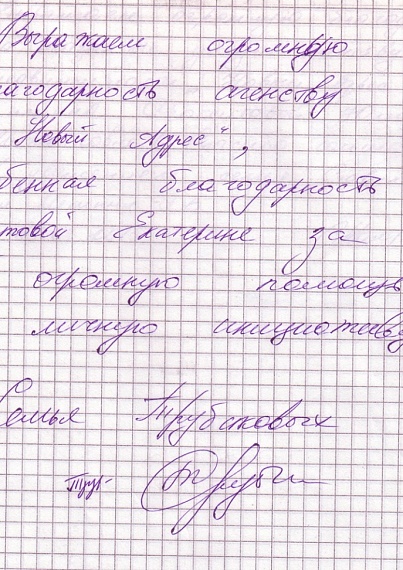 Выражаем огромную
агодарность агенству
Новый Адрес",
бенная благодарность
товой Екатерине за
огромную помощь
личную инициативу
Семья Трубаковых
Труб-